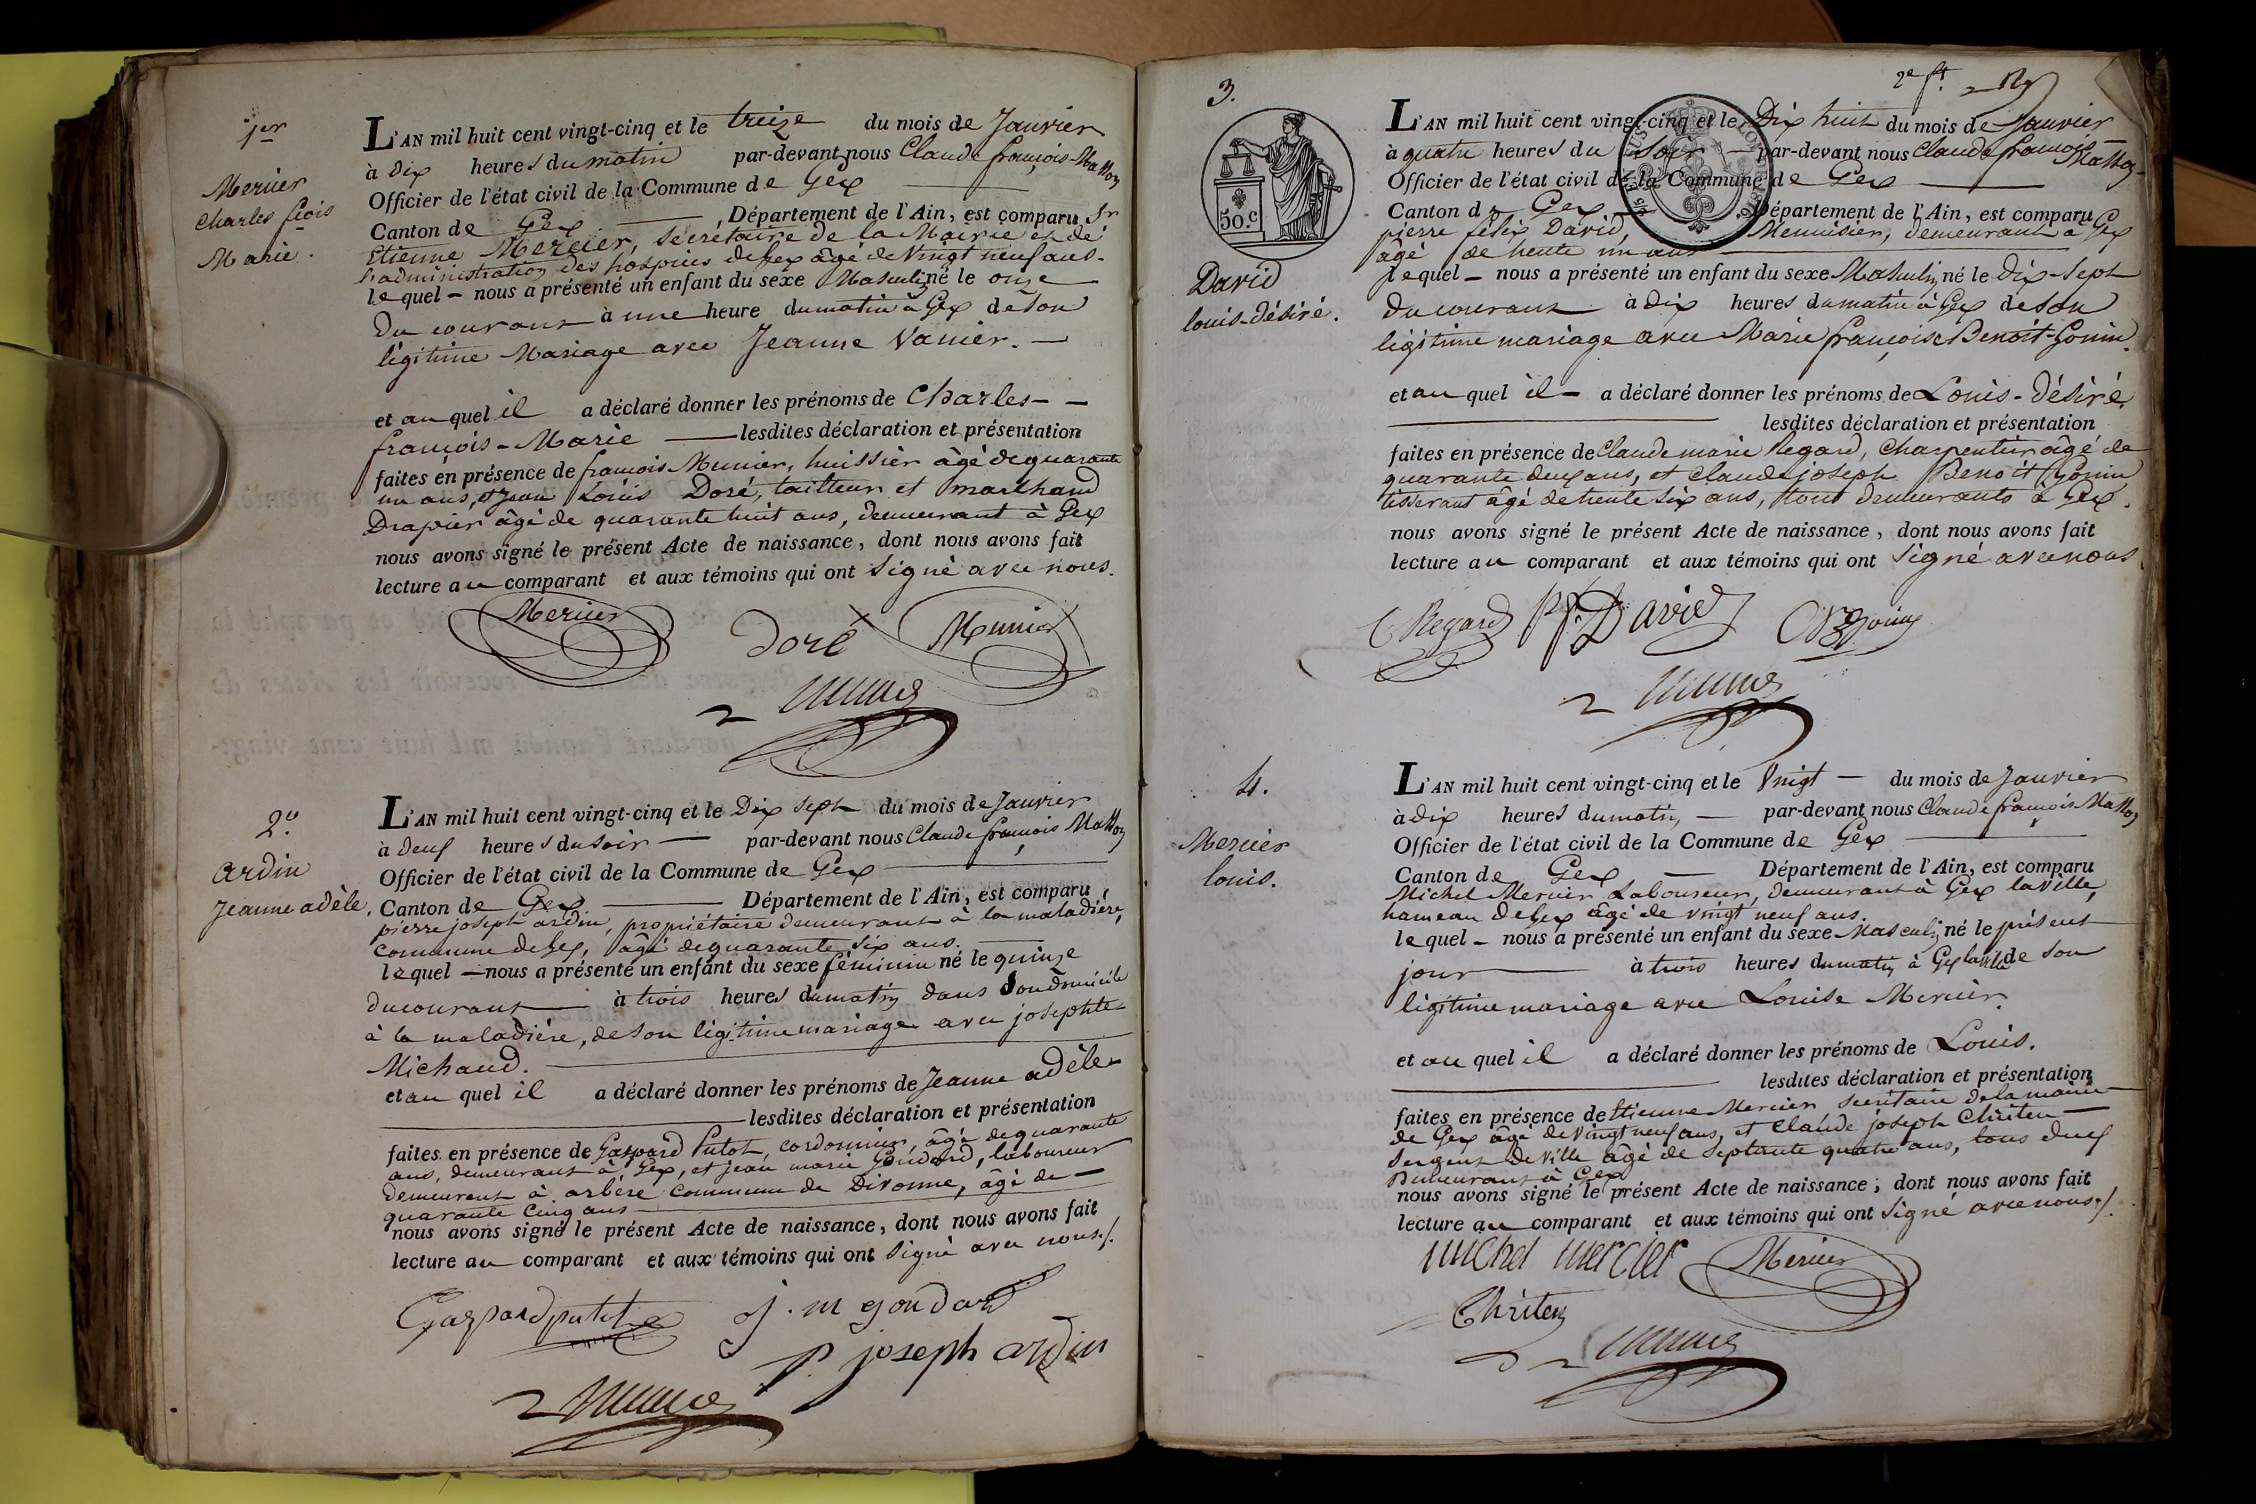 1er
Mercier
Charles fçois
Marie.
L'AN mil huit cent vingt-cinq et le treize du mois de Janvier
à dix heures du matin par-devant nous Claude françois Matton
Officier de l'état civil de la Commune de Gex
Canton de Gex, Département de l'Ain, est comparu Sr
Etienne Mercier, secrétaire de la Mairie et de
l'administration des hospices de Gex âgé de Vingt neuf ans.
lequel - nous a présenté un enfant du sexe Masculin né le onze
du courant à une heure du matin à Gex de son
légitime Mariage avec Jeanne Vanier. —
et au quel il a déclaré donner les prénoms de Charles - -
françois - Marie — lesdites déclaration et présentation
faites en présence de françois Munier, huissier âgé de quarante
un ans, et Jean Louis Doré, tailleur et marchand
Drapier âgé de quarante huit ans, demeurant à Gex
nous avons signé le présent Acte de naissance, dont nous avons fait
lecture au comparant et aux témoins qui ont signé avec nous.
Mercier Doré Munier
2.e
ardin
Jeanne adèle.
L'AN mil huit cent vingt-cinq et le Dix sept du mois de Janvier
à deux heures du soir — par-devant nous Claude françois Matton
Officier de l'état civil de la Commune de Gex
Canton de Gex — Département de l'Ain, est comparu
pierre joseph ardin, propriétaire demeurant à la maladière,
commune de Gex, âgé de quarante six ans.
lequel — nous a présenté un enfant du sexe féminin né le quinze
du courant — à trois heures du matin dans son domicile
à la maladière, de son légitime mariage avec josephte
Michaud.
et au quel il a déclaré donner les prénoms de Jeanne adèle
— lesdites déclaration et présentation
faites en présence de Gaspard Putot, cordonnier, âgé de quarante
ans, demeurant à Gex, et jean marie Goudard, laboureur
demeurant à arbère commune de Divonne, âgé de —
quarante cinq ans
nous avons signé le présent Acte de naissance, dont nous avons fait
lecture au comparant et aux témoins qui ont signé avec nous./.
Gaspard putot j. m goudard
p joseph ardin
2e ft.
3.
50 c.
David
louis-désiré.
L'AN mil huit cent vingt-cinq et le Dix huit du mois de Janvier
à quatre heures du soir — par-devant nous Claude françois Matton
Officier de l'état civil de la Commune de Gex
Canton de Gex Département de l'Ain, est comparu
pierre félix David, Menuisier, demeurant à Gex
âgé de trente un ans
lequel - nous a présenté un enfant du sexe Masculin né le Dix-sept
du courant à dix heures du matin à Gex de son
légitime mariage avec Marie françoise Benoit-Gonin.
et au quel il - a déclaré donner les prénoms de Louis-désiré.
— lesdites déclaration et présentation
faites en présence de Claude marie Regard, Charpentier âgé de
quarante deux ans, et Claude joseph Benoit Gonin
tisserant âgé de trente six ans, tous demeurants à Gex.
nous avons signé le présent Acte de naissance, dont nous avons fait
lecture au comparant et aux témoins qui ont signé avec nous
C Regard pf. David
4.
Mercier
louis.
L'AN mil huit cent vingt-cinq et le Vingt — du mois de Janvier
à dix heures du matin, — par-devant nous Claude françois Matton
Officier de l'état civil de la Commune de Gex
Canton de Gex — Département de l'Ain, est comparu
Michel Mercier Laboureur, demeurant à Gex la ville,
hameau de Gex âgé de vingt neuf ans.
lequel - nous a présenté un enfant du sexe Masculin né le présent
jour — à trois heures du matin à Gex la ville de son
légitime mariage avec Louise Mercier.
et au quel il a déclaré donner les prénoms de Louis.
— lesdites déclaration et présentation
faites en présence de Etienne Mercier secrétaire de la mairie
de Gex âgé de vingt neuf ans, et Claude joseph Christen
sergent de ville âgé de septante quatre ans, tous deux
Demeurant à Gex
nous avons signé le présent Acte de naissance; dont nous avons fait
lecture au comparant et aux témoins qui ont signé avec nous./.
michel mercier Mercier